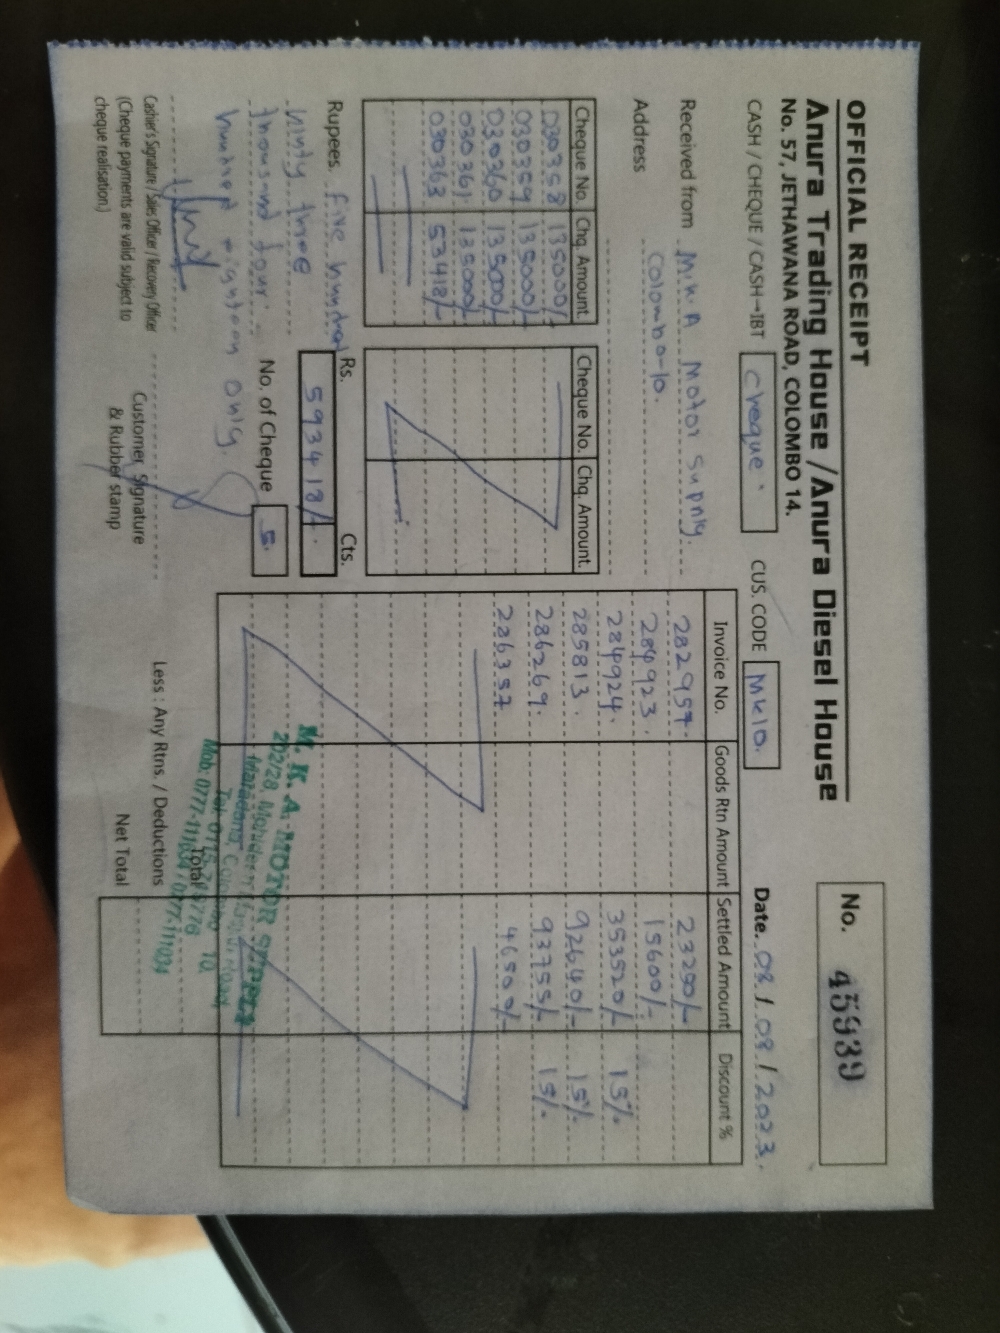 OFFICIAL RECEIPT
No. 45939
Anura Trading House / Anura Diesel House
No. 57, JETHAWANA ROAD, COLOMBO 14.
CASH / CHEQUE / CASH→IBT Cheque CUS. CODE MK10. Date. 08 / 08 / 2023.
Received from M.K.A Motor Supply.
Address Colombo-10.
Cheque No. Chq. Amount.
030358 135000/-
030359 135000/-
030360 135000/-
030361 135000/-
030363 53418/-
Cheque No. Chq. Amount.
Invoice No. Goods Rtn Amount Settled Amount Discount %
282957. 23290/-
284923. 15600/-
284924. 353520/- 15%
285813. 92640/- 15%
286269. 93755/- 15%
286357. 46500/-
Rupees. five hundred
ninty three
thousand four
hundred eighteen only.
Rs. Cts.
593418/-
No. of Cheque 5.
Cashier's Signature / Sales Officer / Recovery Officer
(Cheque payments are valid subject to
cheque realisation.)
Customer Signature
& Rubber stamp
Total
Less : Any Rtns. / Deductions
Net Total
M. K. A. MOTOR SUPPLY
202/28,
Maradana, Colombo 10,
Mob: 0777-111034 / 0777-111034